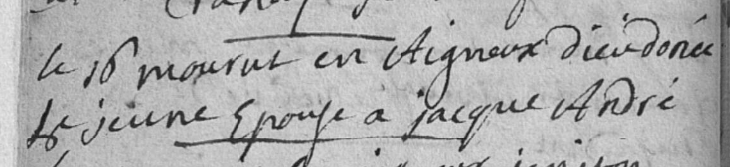 le 16 mourut en Aigneux dieudonée
le jeune Epouse a jacque André